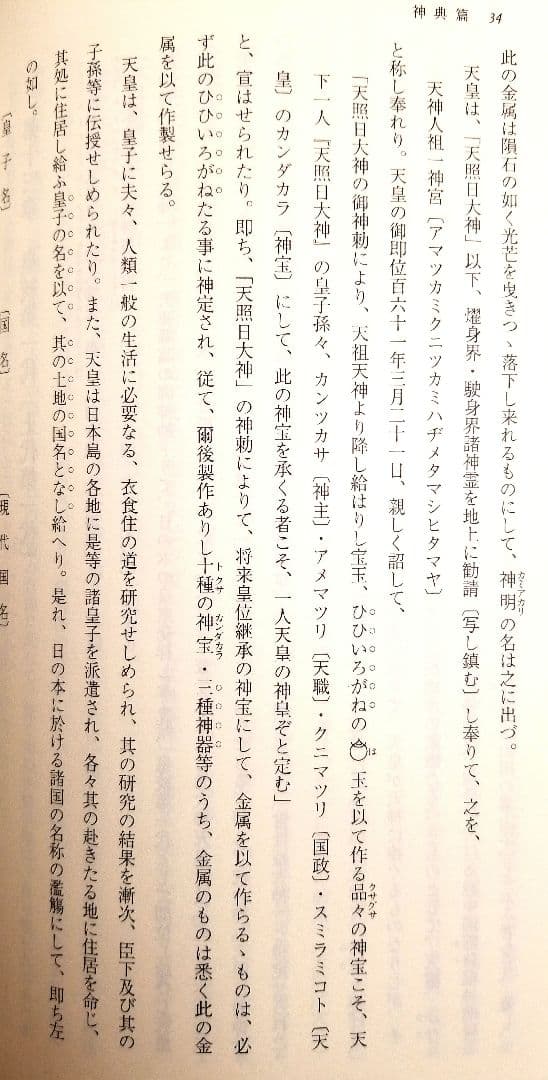 神典篇 34
此の金属は隕石の如く光芒を曳きつゝ落下し来れるものにして、神明の名は之に出づ。
カミアカリ
天皇は、「天照日大神」以下、燿身界・駛身界諸神霊を地上に勧請〔写し鎮む〕し奉りて、之を、
天神人祖一神宮〔アマツカミクニツカミハヂメタマシヒタマヤ〕
と称し奉れり。天皇の御即位百六十一年三月二十一日、親しく詔して、
「天照日大神の御神勅により、天祖天神より降し給はりし宝玉、ひひいろがねの玉を以て作る品々の神宝こそ、天
は
クサグサ
下一人『天照日大神』の皇子孫々、カンツカサ〔神主〕・アメマツリ〔天職〕・クニマツリ〔国政〕・スミラミコト〔天
皇〕のカンダカラ〔神宝〕にして、此の神宝を承くる者こそ、一人天皇の神皇ぞと定む」
と、宣はせられたり。即ち、「天照日大神」の神勅によりて、将来皇位継承の神宝にして、金属を以て作らるゝものは、必
ず此のひひいろがねたる事に神定され、従て、爾後製作ありし十種の神宝・三種神器等のうち、金属のものは悉く此の金
トクサ
カンダカラ
属を以て作製せらる。
天皇は、皇子に夫々、人類一般の生活に必要なる、衣食住の道を研究せしめられ、其の研究の結果を漸次、臣下及び其の
子孫等に伝授せしめられたり。また、天皇は日本島の各地に是等の諸皇子を派遣され、各々其の赴きたる地に住居を命じ、
其処に住居し給ふ皇子の名を以て、其の土地の国名となし給へり。是れ、日の本に於ける諸国の名称の濫觴にして、即ち左
の如し。
〔皇子名〕 〔国名〕 〔現代国名〕